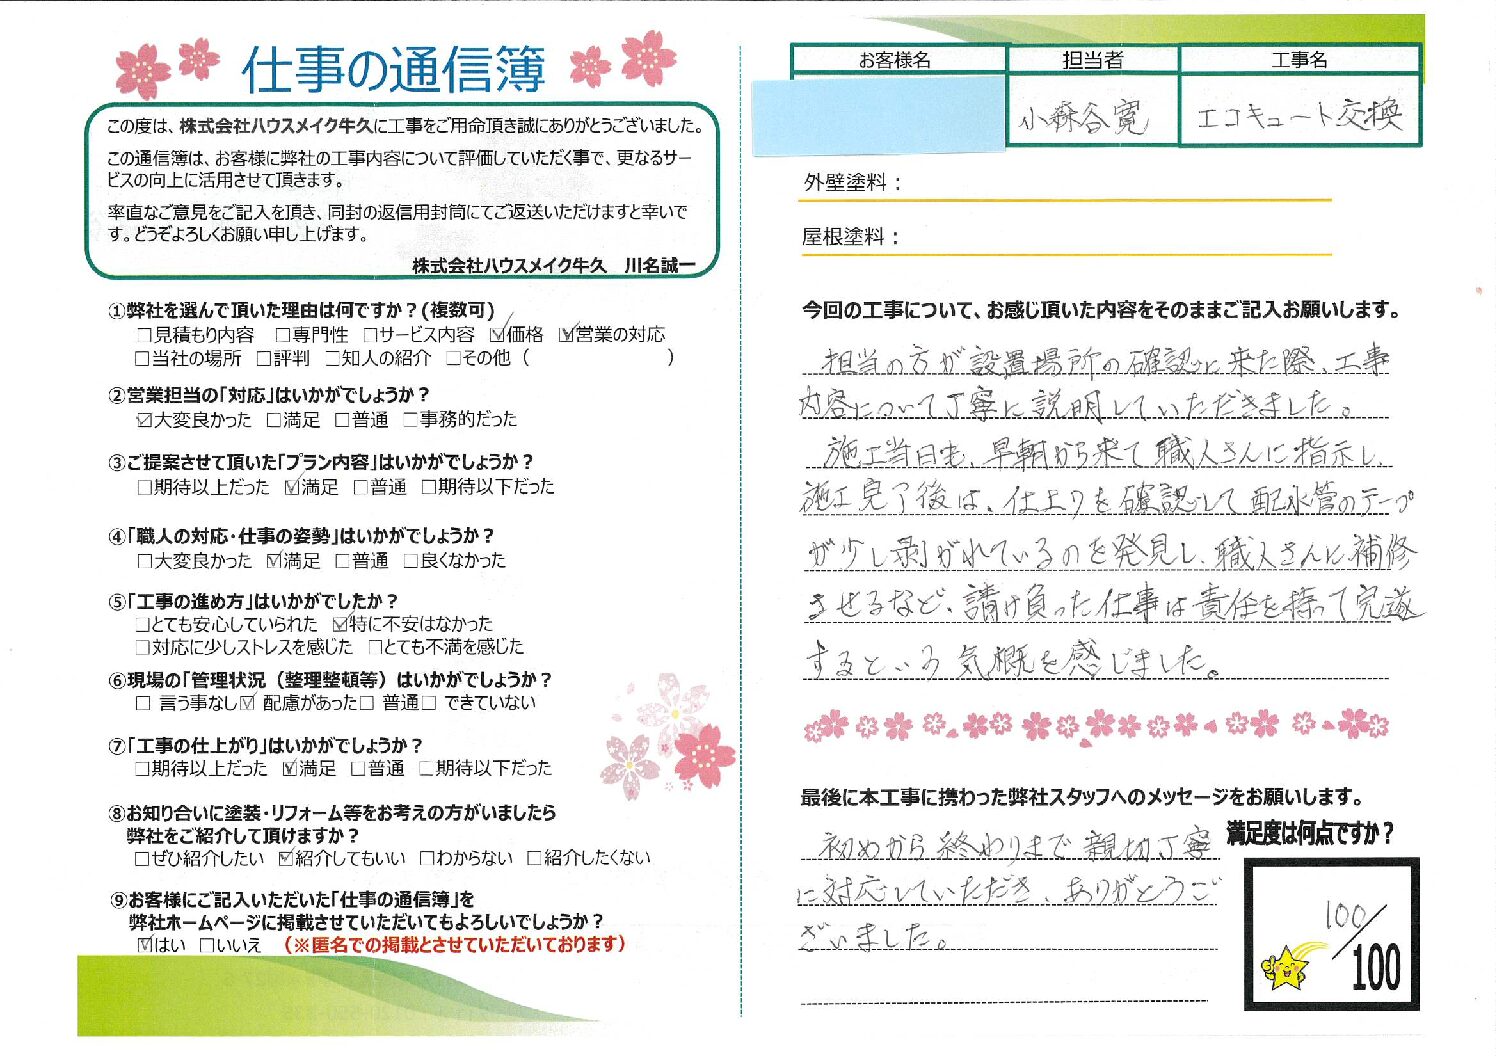 仕事の通信簿
この度は、株式会社ハウスメイク牛久に工事をご用命頂き誠にありがとうございました。
この通信簿は、お客様に弊社の工事内容について評価していただく事で、更なるサー
ビスの向上に活用させて頂きます。
率直なご意見をご記入を頂き、同封の返信用封筒にてご返送いただけますと幸いで
す。どうぞよろしくお願い申し上げます。
株式会社ハウスメイク牛久　川名誠一
①弊社を選んで頂いた理由は何ですか？(複数可)
□見積もり内容　□専門性　□サービス内容　☑価格　☑営業の対応
□当社の場所　□評判　□知人の紹介　□その他（　　　　　　）
②営業担当の「対応」はいかがでしょうか？
☑大変良かった　□満足　□普通　□事務的だった
③ご提案させて頂いた「プラン内容」はいかがでしょうか？
□期待以上だった　☑満足　□普通　□期待以下だった
④「職人の対応・仕事の姿勢」はいかがでしょうか？
□大変良かった　☑満足　□普通　□良くなかった
⑤「工事の進め方」はいかがでしたか？
□とても安心していられた　☑特に不安はなかった
□対応に少しストレスを感じた　□とても不満を感じた
⑥現場の「管理状況（整理整頓等）はいかがでしょうか？
□ 言う事なし☑ 配慮があった□ 普通□ できていない
⑦「工事の仕上がり」はいかがでしょうか？
□期待以上だった　☑満足　□普通　□期待以下だった
⑧お知り合いに塗装・リフォーム等をお考えの方がいましたら
弊社をご紹介して頂けますか？
□ぜひ紹介したい　☑紹介してもいい　□わからない　□紹介したくない
⑨お客様にご記入いただいた「仕事の通信簿」を
弊社ホームページに掲載させていただいてもよろしいでしょうか？
☑はい　□いいえ　（※匿名での掲載とさせていただいております）
お客様名　担当者　工事名
小森谷寛　エコキュート交換
外壁塗料：
屋根塗料：
今回の工事について、お感じ頂いた内容をそのままご記入お願いします。
担当の方が設置場所の確認に来た際、工事
内容について丁寧に説明していただきました。
施工当日も、早朝から来て職人さんに指示し、
施工完了後は、仕上りを確認して配水管のテープ
が少し剥がれているのを発見し、職人さんに補修
させるなど、請け負った仕事は責任を持って完遂
するという気概を感じました。
最後に本工事に携わった弊社スタッフへのメッセージをお願いします。
初めから終わりまで親切丁寧
に対応していただき、ありがとうご
ざいました。
満足度は何点ですか？
100/100